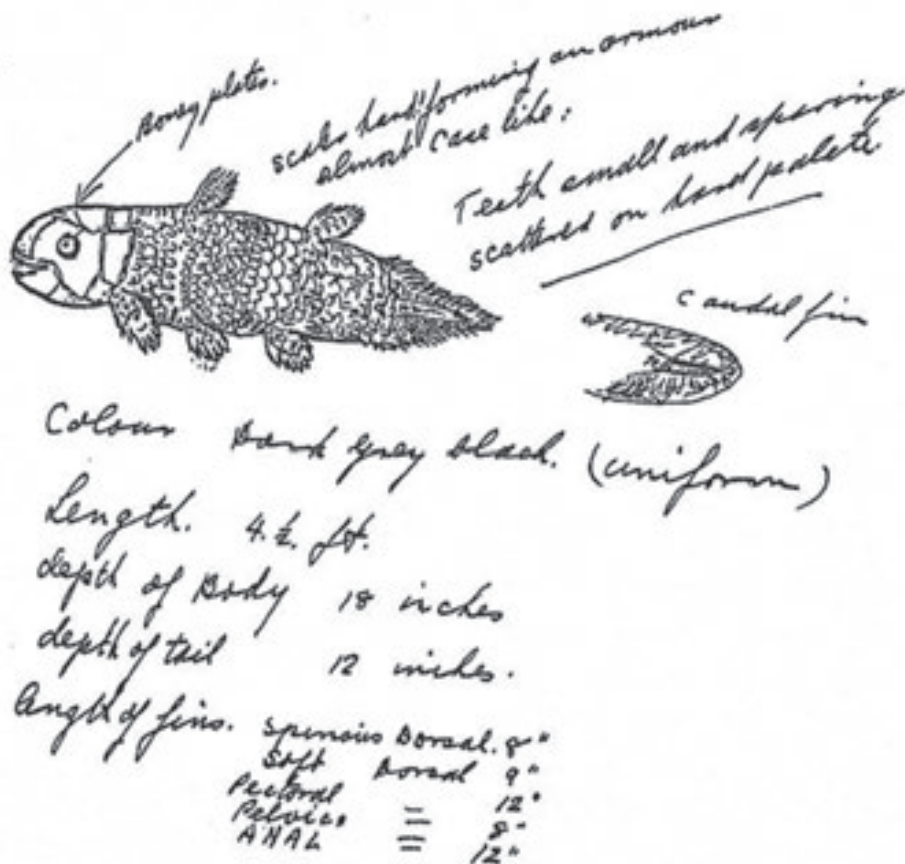 Boney plates.
scales hard forming an armour
almost case like:
Teeth small and sparing
scattered on hard palate
Caudal fin
Colour Dark grey black. (uniform)
Length. 4.½. ft.
depth of Body 18 inches
depth of tail 12 inches.
length of fins. Spinous Dorsal. 8"
Soft Dorsal 9"
Pectoral 12"
Pelvic = 8"
ANAL = 12"